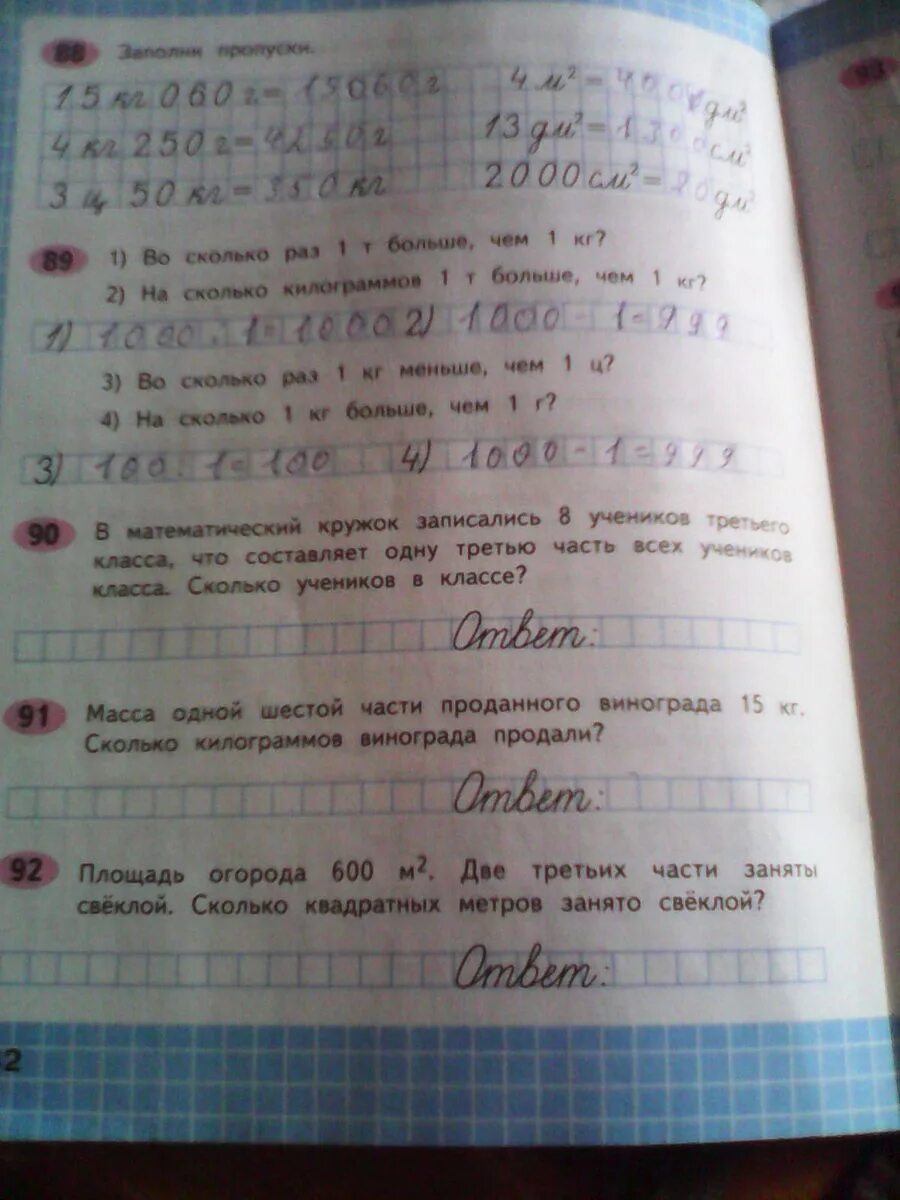 88 Заполни пропуски.
15 кг 060 г = 15060 г
4 м² = 400 дм²
4 кг 250 г = 4250 г
13 дм² = 1300 см²
3 ц 50 кг = 350 кг
2000 см² = 20 дм²
89 1) Во сколько раз 1 т больше, чем 1 кг?
2) На сколько килограммов 1 т больше, чем 1 кг?
1) 1000 : 1 = 1000 2) 1000 - 1 = 999
3) Во сколько раз 1 кг меньше, чем 1 ц?
4) На сколько 1 кг больше, чем 1 г?
3) 100 : 1 = 100 4) 1000 - 1 = 999
90 В математический кружок записались 8 учеников третьего
класса, что составляет одну третью часть всех учеников
класса. Сколько учеников в классе?
Ответ:
91 Масса одной шестой части проданного винограда 15 кг.
Сколько килограммов винограда продали?
Ответ:
92 Площадь огорода 600 м². Две третьих части заняты
свёклой. Сколько квадратных метров занято свёклой?
Ответ:
2
93